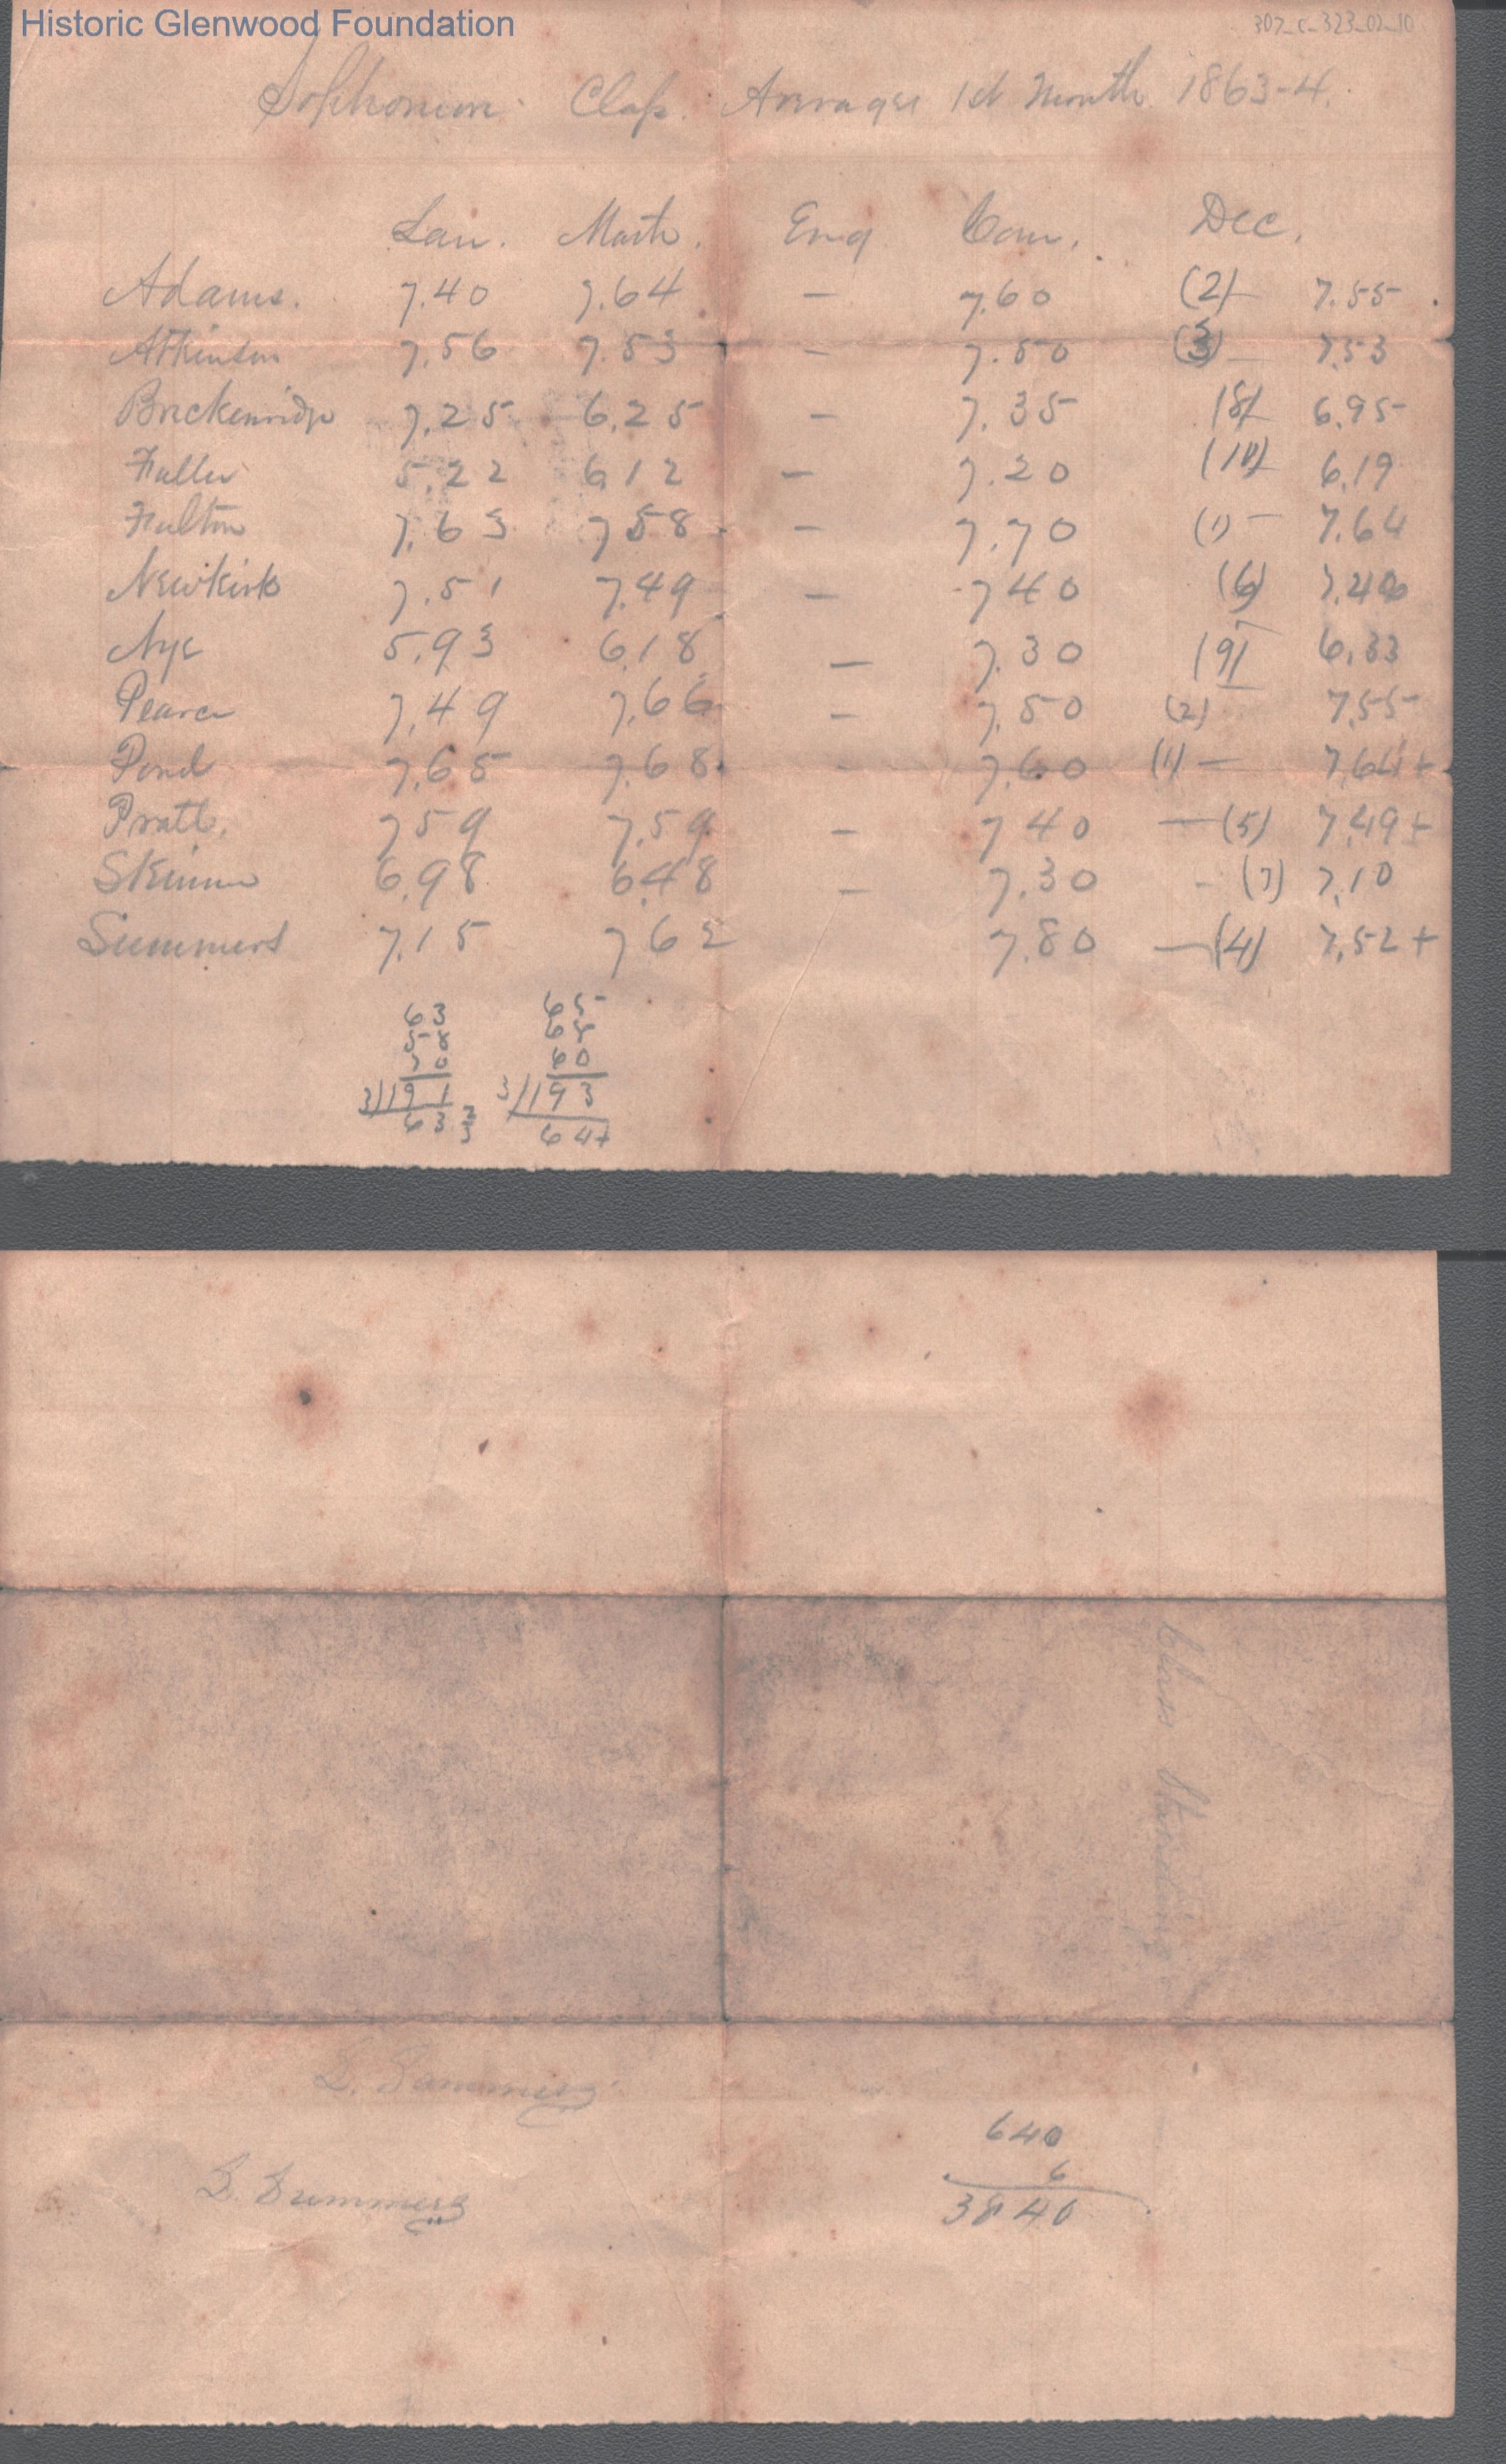 Historic Glenwood Foundation
307_c_323_02_10
Sophomore Class. Averages 1st Month 1863-4.
Lan. Math. Eng. Com. Dec.
Adams. 7.40 7.64 - 7.60 (2) - 7.55
Atkinson 7.56 7.53 - 7.50 (3) - 7.53
Breckenridge 7.25 6.25 - 7.35 (8) - 6.95
Fuller 5.22 6.12 - 7.20 (10) - 6.19
Fulton 7.63 7.58 - 7.70 (1) - 7.64
Newkirk 7.51 7.49 - 7.40 (6) 7.46
Nye 5.93 6.18 - 7.30 (9) 6.33
Pearce 7.49 7.66 - 7.50 (2) 7.55
Pond 7.65 7.68 - 7.60 (1) - 7.64+
Pratt. 7.59 7.59 - 7.40 - (5) 7.49+
Skinner 6.98 6.48 - 7.30 - (7) 7.10
Summers 7.15 7.62 7.80 - (4) 7.52+
63 65
58 68
70 60
3)191 3)193
63 2/3 64+
Class Standing
L. Summers
L. Summers
640
6
3840